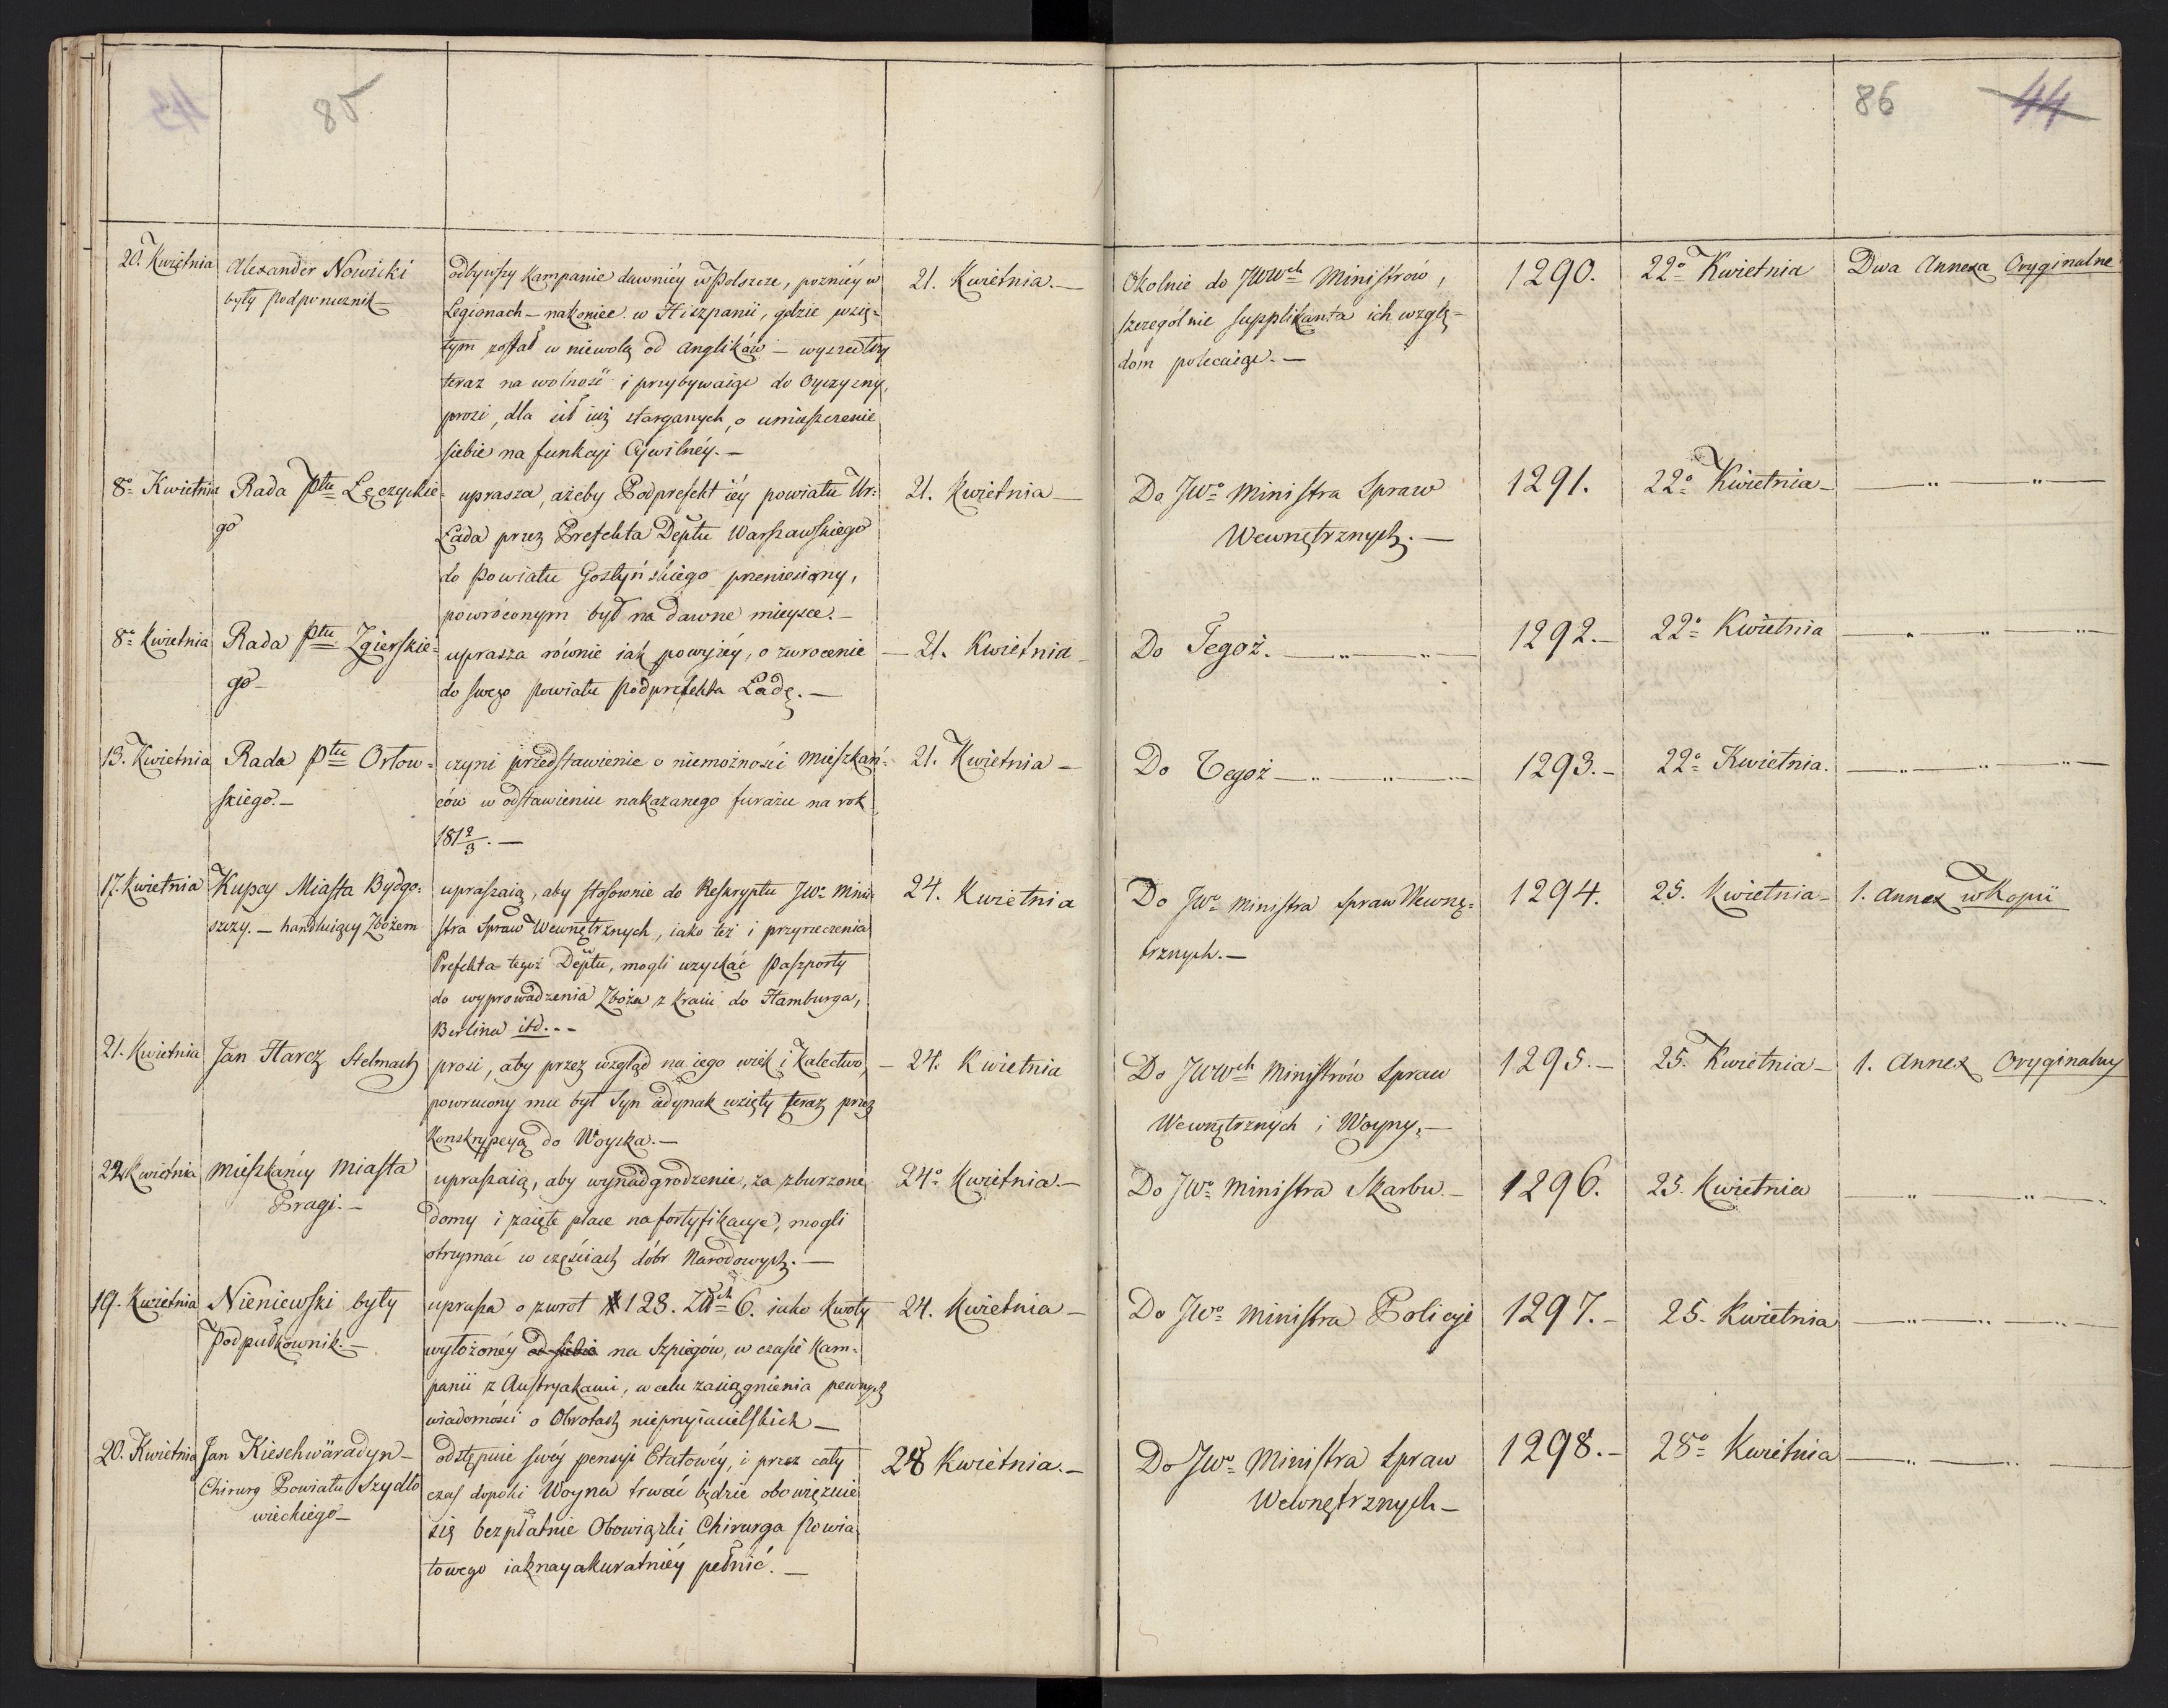 85
86 44
20. Kwietnia Alexander Nowicki odbywszy Kampanie dawniéy w Polszcze, pozniéy w 21. Kwietnia.— Okolnie do JWWch Ministrów, 1290. 22º Kwietnia Dwa Annexa Oryginalne
były Podporucznik— Legionach — nakoniec w Hiszpanii, gdzie wzię= szczególnie supplikanta ich wzglę=
tym został w niewolą od Anglików — wyszedłszy dom polecaiąc.—
teraz na wolność i przybywaiąc do Oyczyzny,
prosi, dla sił iuż starganych, o umieszczenie
siebie na funkcyi Cywilnéy.—
8º Kwietnia Rada Ptu Łęczyckie= uprasza, ażeby Podprefekt iéy powiatu Ur: 21. Kwietnia— Do JWº Ministra Spraw 1291. 22º Kwietnia—
go Łada przez Prefekta Deptu Warszawskiego Wewnętrznych.—
do Powiatu Gostyńskiego przeniesiony,
powróconym był na dawne mieysce.—
8º Kwietnia Rada Ptu Zgierskie= uprasza równie iak powyżéy, o zwrocenie — 21. Kwietnia Do Tegoż.— 1292.— 22º Kwietnia
go— do swego Powiatu Podprefekta Ładę.—
13. Kwietnia Rada Ptu Orłow= czyni przedstawienie o niemożności Mieszkań= 21. Kwietnia— Do Tegoż— 1293.— 22º Kwietnia.
skiego.— ców w odstawieniu nakazanego furażu na rok
181 2/3.—
17. Kwietnia Kupcy Miasta Bydgo= upraszaią, aby stosownie do Reskryptu JWº Mini= 24. Kwietnia Do JWº Ministra Spraw Wewnę= 1294. 25. Kwietnia— 1. Annex w Kopii
szczy.— handluiący Zbożem stra Spraw Wewnętrznych, iako też i przyrzeczenia trznych.—
Prefekta tegoż Deptu, mogli uzyskać Paszporty
do wyprowadzenia Zboża z Kraiu do Hamburga,
Berlina itd.--
21. Kwietnia Jan Harcz Stelmach prosi, aby przez wzgląd na iego wiek i Kalectwo, — 24. Kwietnia Do JWWch Ministrów Spraw 1295.— 25. Kwietnia— 1. Annex Oryginalny
powrucony mu był Syn iedynak wzięty teraz przez Wewnętrznych i Woyny.—
Konskrypcyą do Woyska.—
22. Kwietnia Mieszkańcy Miasta upraszaią, aby wynadgrodzenie, za zburzone 24º Kwietnia.— Do JWº Ministra Skarbu.— 1296. 25. Kwietnia
Pragi.— domy i zaięte place na fortyfikacye, mogli
otrzymać w częściach dóbr Narodowych.—
19. Kwietnia Nieniewski były uprasza o zwrot # 128. Złch 6. iako kwoty 24. Kwietnia— Do JWº Ministra Policyi 1297.— 25. Kwietnia
Podpułkownik.— wyłożonéy od siebie na Szpiegów, w czasie Kam=
panii z Austryakami, w celu zasiągnienia pewnych
wiadomości o Obrotach nieprzyiacielskich—
20. Kwietnia Jan Kieschwäradyn— odstępuie swéy pensyi Etatowéy, i przez cały 28 Kwietnia.— Do JWº Ministra Spraw 1298.— 28º Kwietnia
Chirurg Powiatu Szydło czas dopóki Woyna trwać będzie obowięzuie Wewnętrznych—
wieckiego— się bezpłatnie Obowiązki Chirurga Powia
towego iaknayakuratniéy pełnić.—